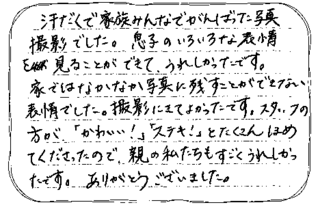 汗だくで家族みんなでがんばった写真
撮影でした。息子のいろいろな表情
見ることができて、うれしかったです。
家ではなかなか写真に残すことができない
表情でした。撮影にきてよかったです。スタッフの
方が、「かわいい!」「ステキ!」とたくさんほめ
てくださったので、親の私たちもすごくうれしかっ
たです。ありがとうございました。